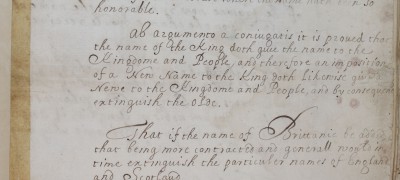 honorable.
Ab argumento a conjugatis it is proued that
the name of the King doth giue the name to the
Kingdome and People, and therefore an imposition
of a New Name to the King doth Likewise giue
Newe to the Kingdome and People, and by consequent
extinguish the Olde.
That if the name of Brittanie be added
that being more contracted and generall
time extinguish the particular names of England
and Scotland.